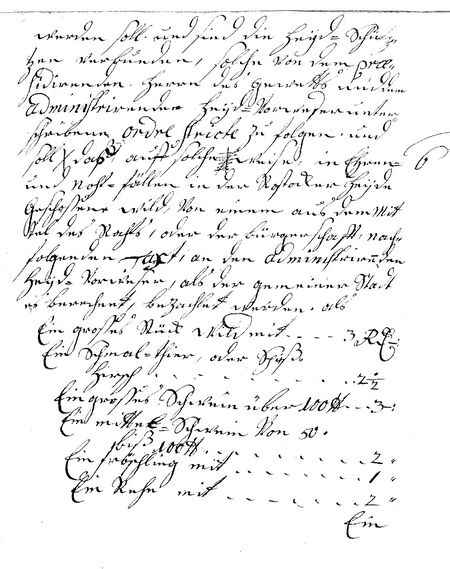 werden soll. und sind die Heyd-Schü-
tzen verbunden, solche von dem præ-
sidirenden Herrn des gewetts und dem
Administrirenden Heyd-Vorweser unter-
schriebene Ordel stricte zu folgen. und
soll daß auff solche weise, in Ehren- 6
und Noht-fällen in der Rostocker Heyde
Geschossene wild, Von einem aus dem Mit-
tel des Rahts, oder der bürgerschafft, nach-
folgenden Taxt, an den Administrirenden
Heyd-Vorweser, als der gemeiner Stadt
es berechnet, bezahlet werden. als
Ein grosses Stück Wild mit - - - - 3 Rthl
Ein Schmal-thier, oder Spieß-
Hirsch - - - - - - - 2 1/2
Ein grosses Schwein über 100 ℔ - - 3 "
Ein mittel-Schwein Von 50.
biß 100 ℔ - - - - - - 2 "
Ein fröchling mit - - - - - 1 "
Ein Rehe mit - - - - - - 2 "
Ein